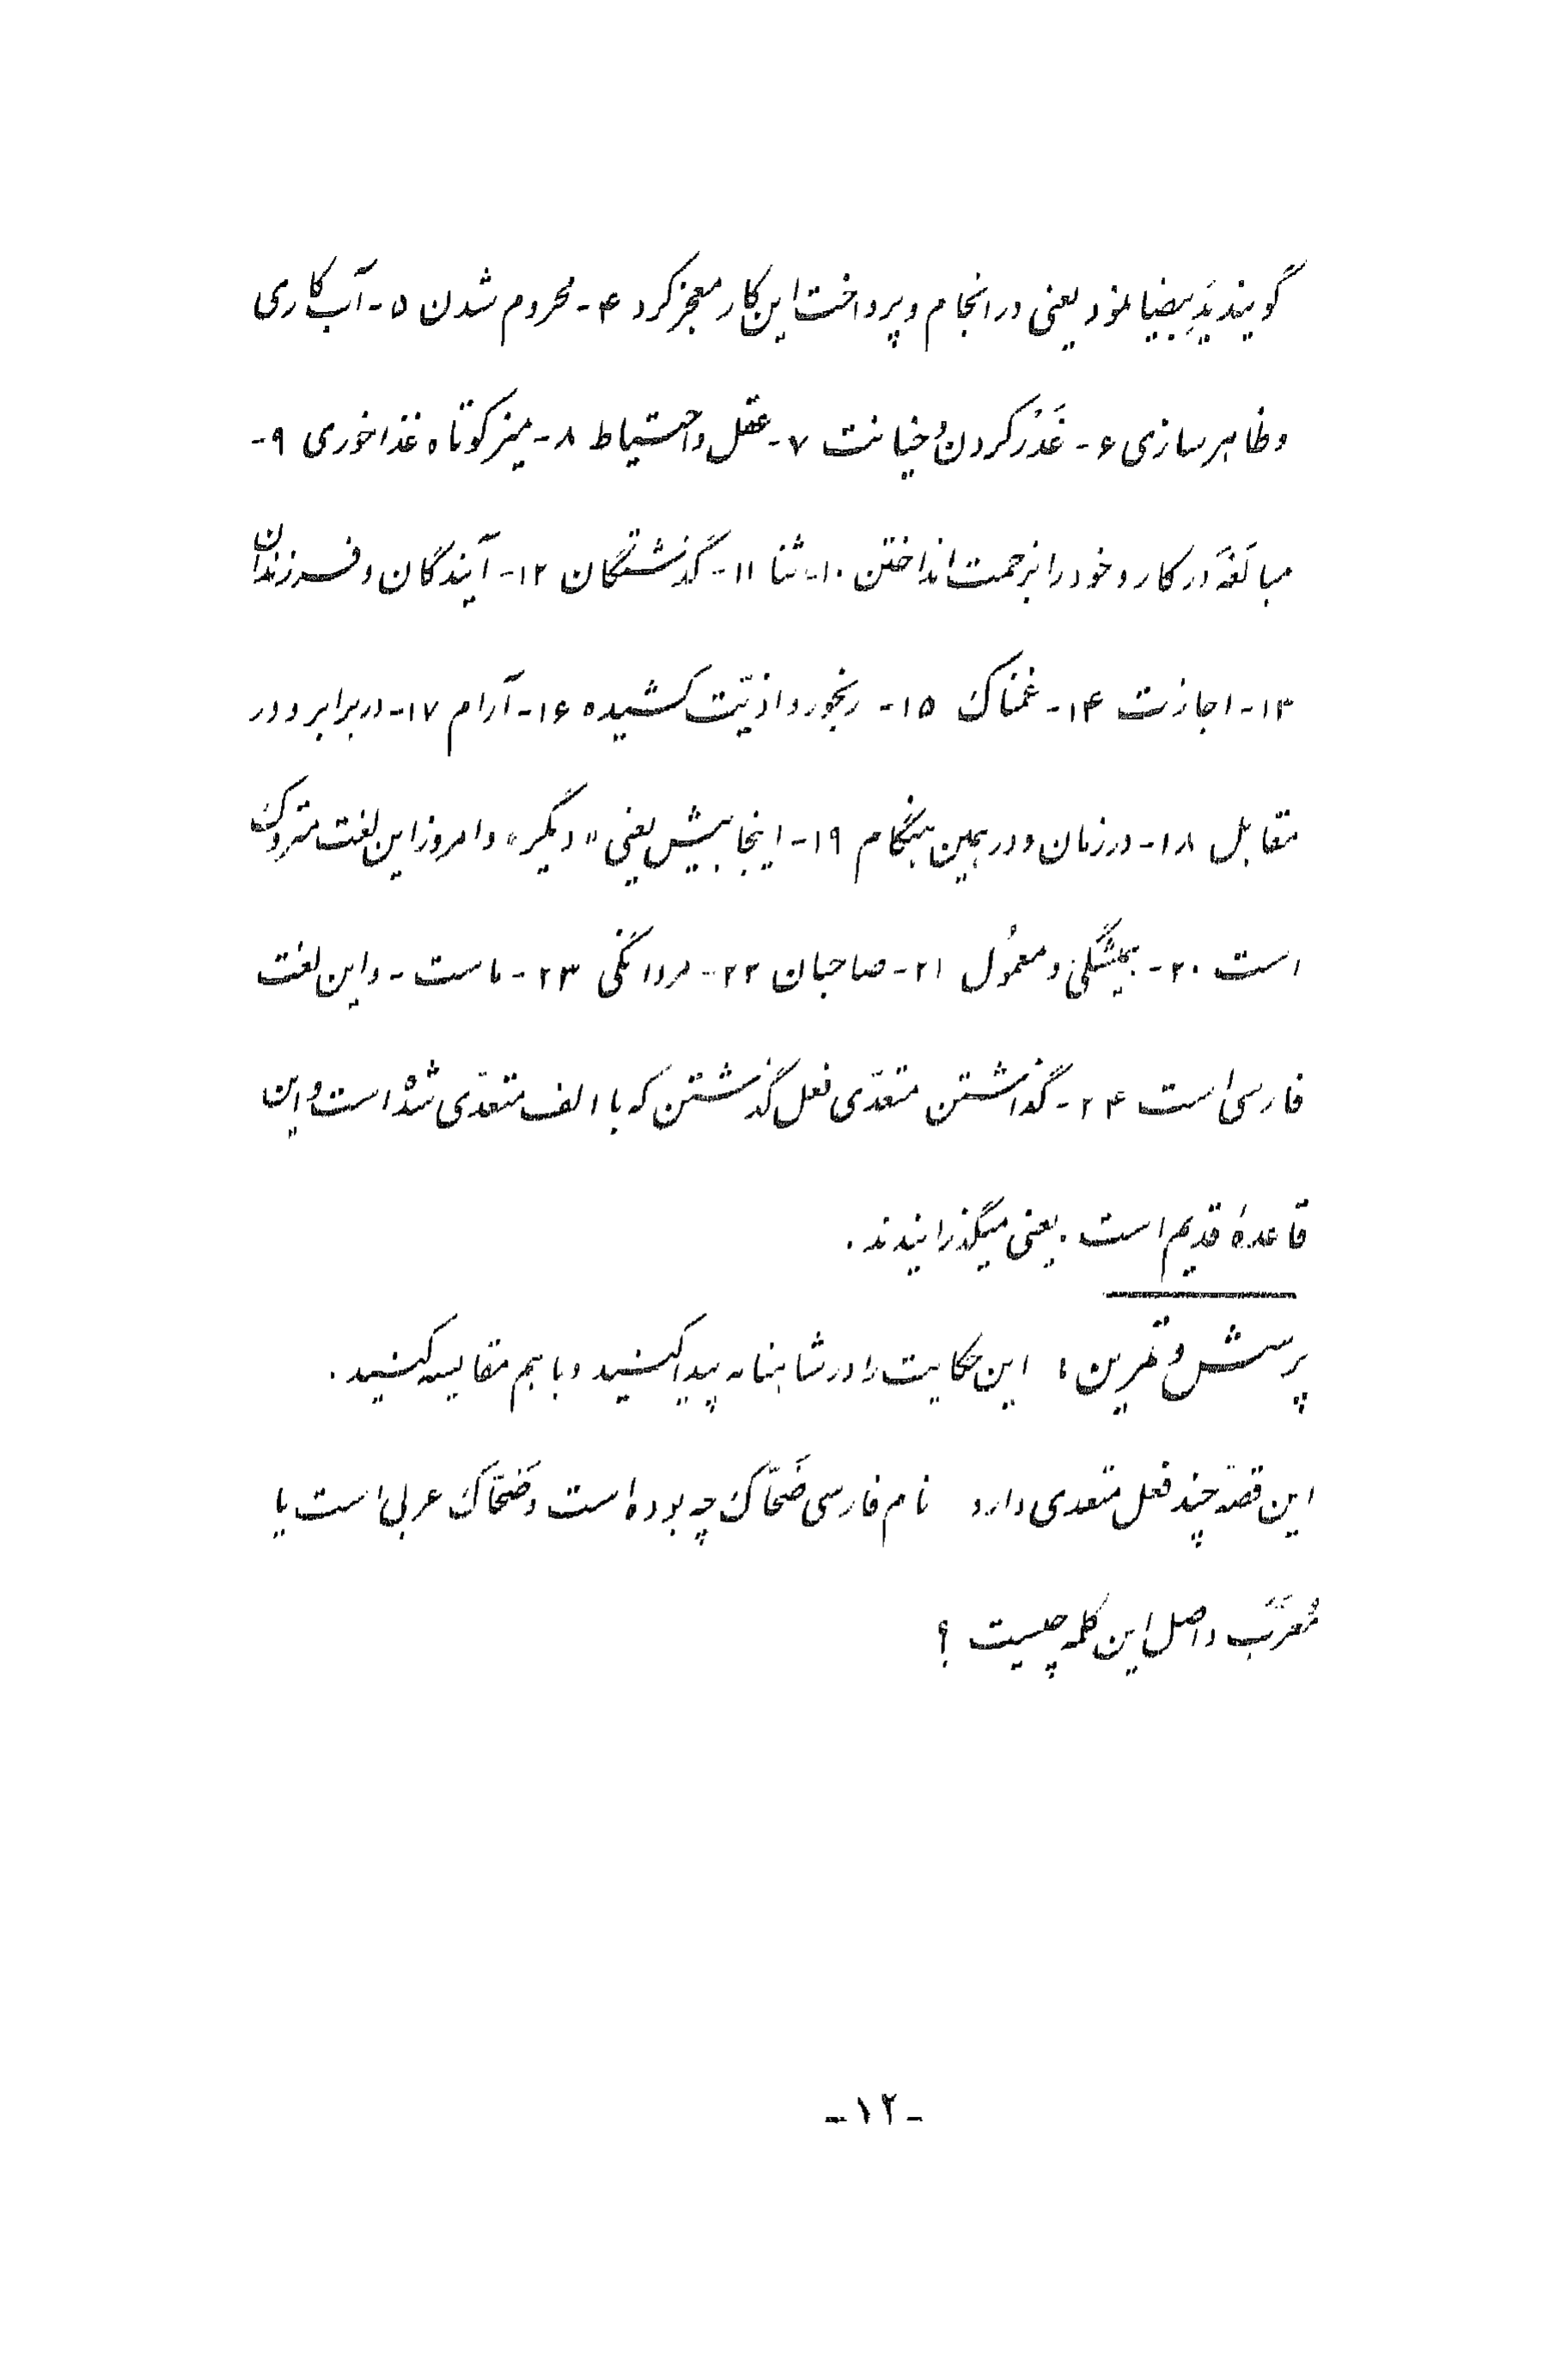 گویند یَدِ بیضا نمود یعنی در انجام و پرداخت این کار معجز کرد ۴- محروم شدن ۵- آب کاری
و ظاهر سازی ۶- غَدْر کردن و خیانت ۷- عقل و احتیاط ۸- میز کوتاه غذاخوری ۹-
مبالَغَه در کار و خود را بزحمت انداختن ۱۰- ثنا ۱۱- گذشتگان ۱۲- آیندگان و فرزندان
۱۳- اجازت ۱۴- غمناک ۱۵- رنجور و اذیّت کشیده ۱۶- آرام ۱۷- در برابر و در
مقابل ۱۸- در زمان و در همین هنگام ۱۹- اینجا بیش یعنی «دیگر» و امروز این لغت متروک
است ۲۰- همیشگی و معمُول ۲۱- صاحبان ۲۲- مردانگی ۲۳- ماست - و این لغت
فارسی است ۲۴- گذاشتن متعدّی فعل گذشتن که با الف متعدّی شده است و این
قاعدهٔ قدیم است. یعنی میگذرانیدند.
پرسش و تمرین: این حکایت را در شاهنامه پیدا کنید و با هم مقایسه کنید.
این قصّه چند فعل متعدی دارد نام فارسی ضَحّاک چه بوده است و ضَحّاک عربی است یا
مُعَرَّب و اصل این کلمه چیست ؟
-۱۲-